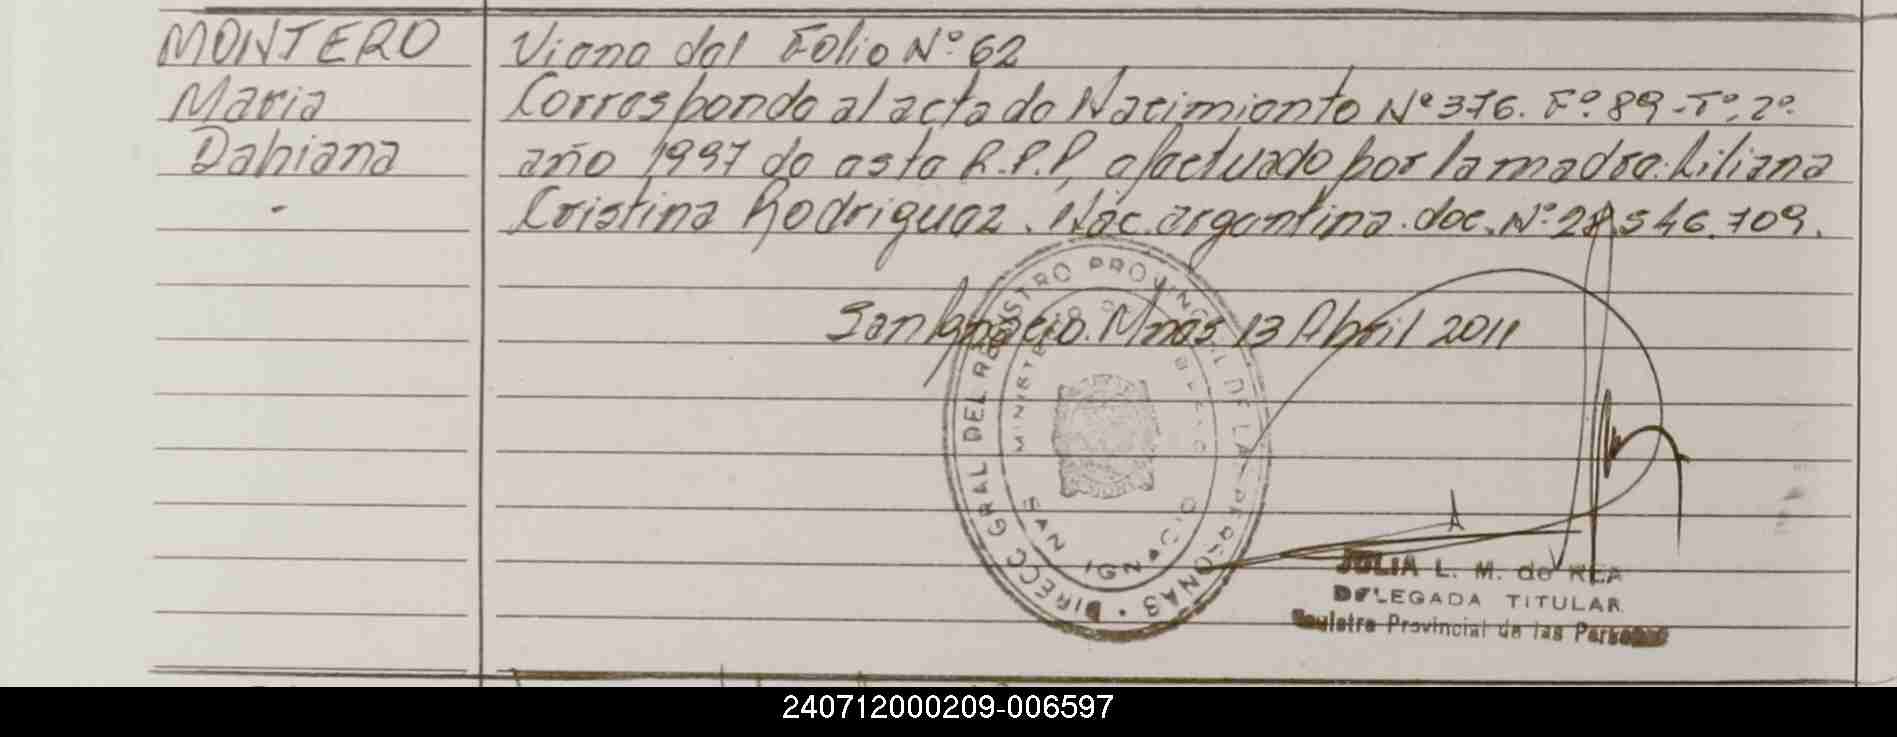 MONTERO
Maria
Dahiana
-
Viene del Folio Nº 62
Corresponde al acta de Nacimiento Nº 376. Fº. 89 - Tº. 2º.
año 1997 de este R.P.P, efectuado por la madre: Liliana
Cristina Rodriguez. Nac. argentina. doc. Nº 28.546.709.
San Ignacio. Mnes 13 Abril 2011
DIRECC GRAL DEL REGISTRO PROVINCIAL DE LAS PERSONAS
MINISTERIO DE
SAN IGNACIO
JULIA L. M. de REA
DELEGADA TITULAR
Registro Provincial de las Personas
240712000209-006597